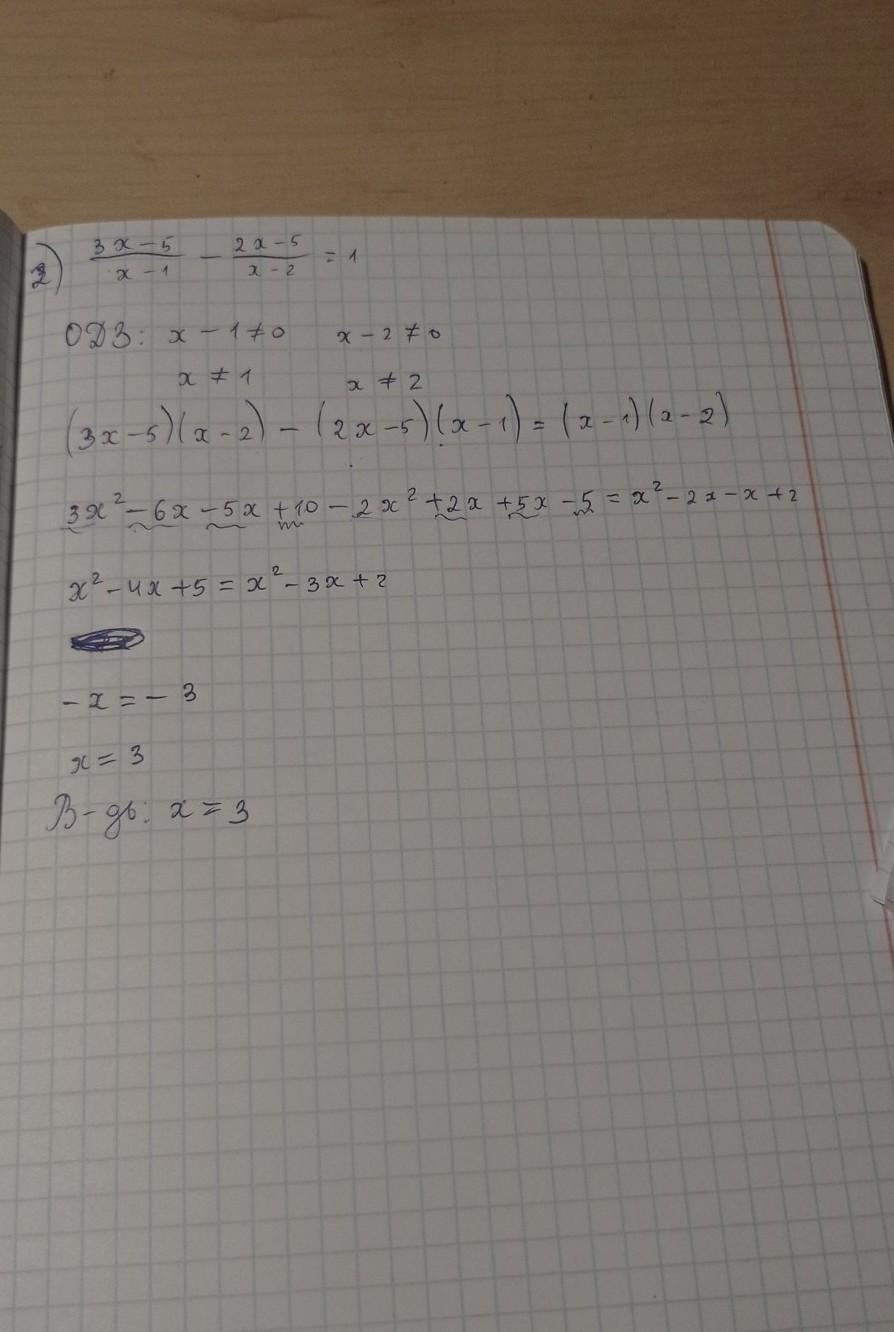 2) (3x-5)/(x-1) - (2x-5)/(x-2) = 1
ОДЗ: x - 1 ≠ 0 x - 2 ≠ 0
x ≠ 1 x ≠ 2
(3x-5)(x-2) - (2x-5)(x-1) = (x-1)(x-2)
3x² - 6x - 5x + 10 - 2x² + 2x + 5x - 5 = x² - 2x - x + 2
x² - 4x + 5 = x² - 3x + 2
- x = - 3
x = 3
В-дь: x = 3